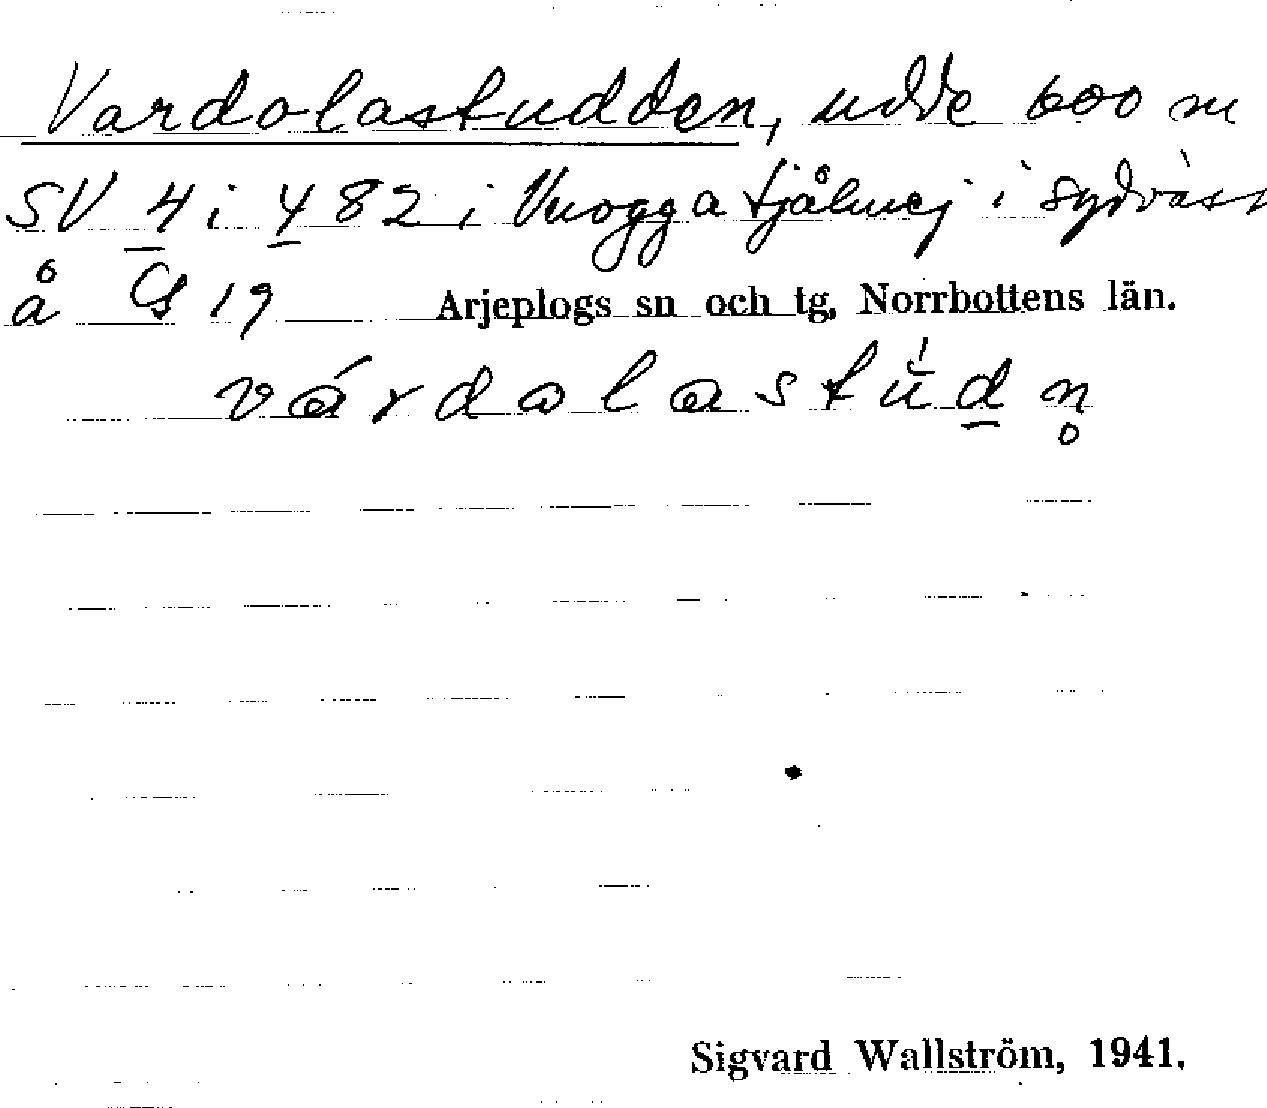 Vardolastudden, udde 600 m
SV 4 i 482 i Vuoggatjålmej i sydväst
å Gs 19 Arjeplogs sn och tg, Norrbottens län.
várdolastúdn̥
Sigvard Wallström, 1941.